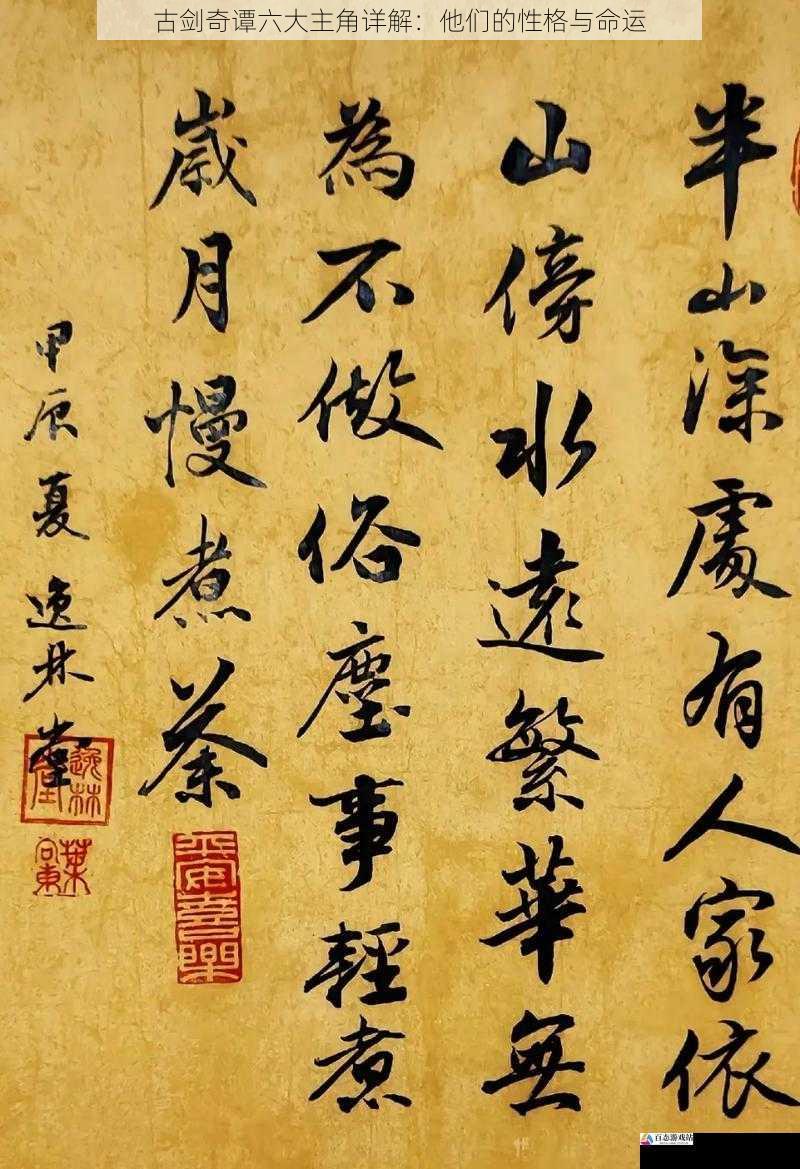 古剑奇谭六大主角详解：他们的性格与命运
半山深處有人家依
山傍水遠繁華無
為不做俗塵事輕煮
歲月慢煮茶
甲辰夏逸林堂
逸林堂
葉向東
百态游戏站